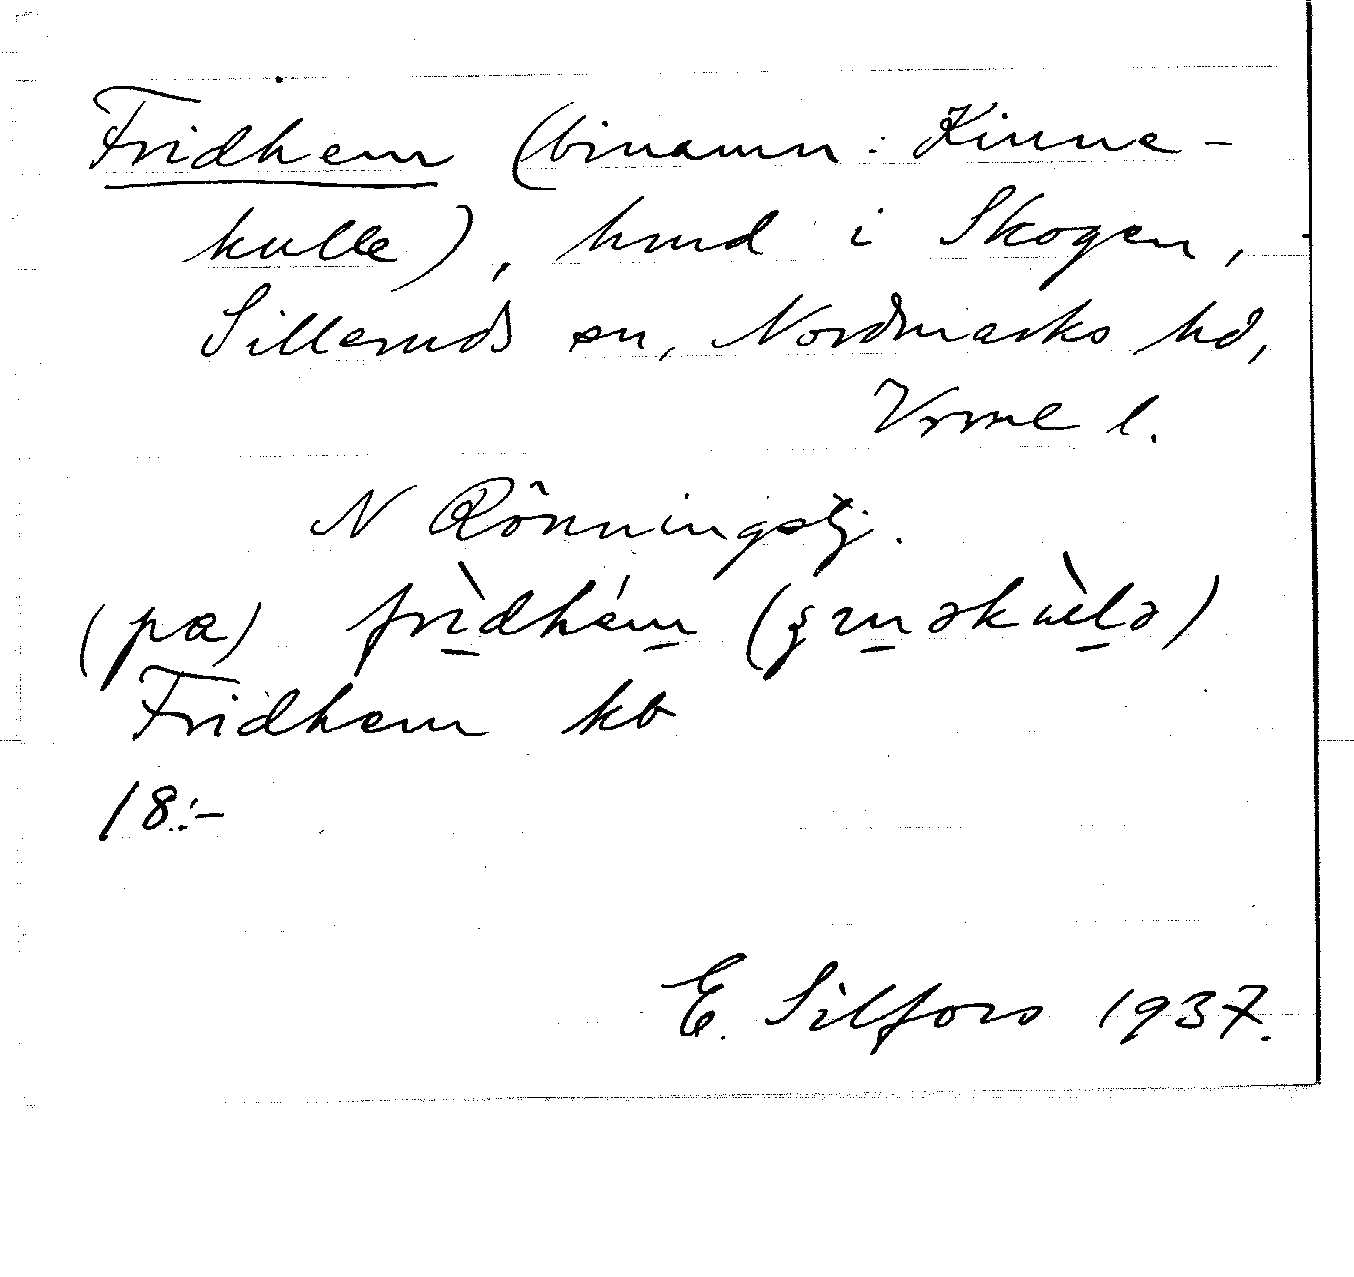 Fridhem (binamn: Kinne-
kulle), hmd i Skogen,
Silleruds sn, Nordmarks hd,
Vrml l.
N Rönningstj.
(pa) frìdhém (ʂɪnəkùlə)
Fridhem kb
18:-
E. Silfors 1937.